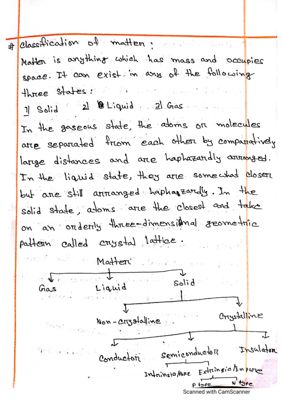 # Classification of matter:
Matter is anything which has mass and occupies
space. It can exist in any of the following
three states:
1) Solid 2) Liquid 3) Gas
In the gaseous state, the atoms or molecules
are separated from each other by comparatively
large distances and are haphazardly arranged.
In the liquid state, they are somewhat closer
but are still arranged haphazardly. In the
solid state, atoms are the closest and take
on an orderly three-dimensional geometric
pattern called crystal lattice.
Matter
Gas Liquid Solid
Non-crystalline Crystalline
Conductor Semiconductor Insulator
Intrinsic/pure Extrinsic/Impure
P type N type
Scanned with CamScanner